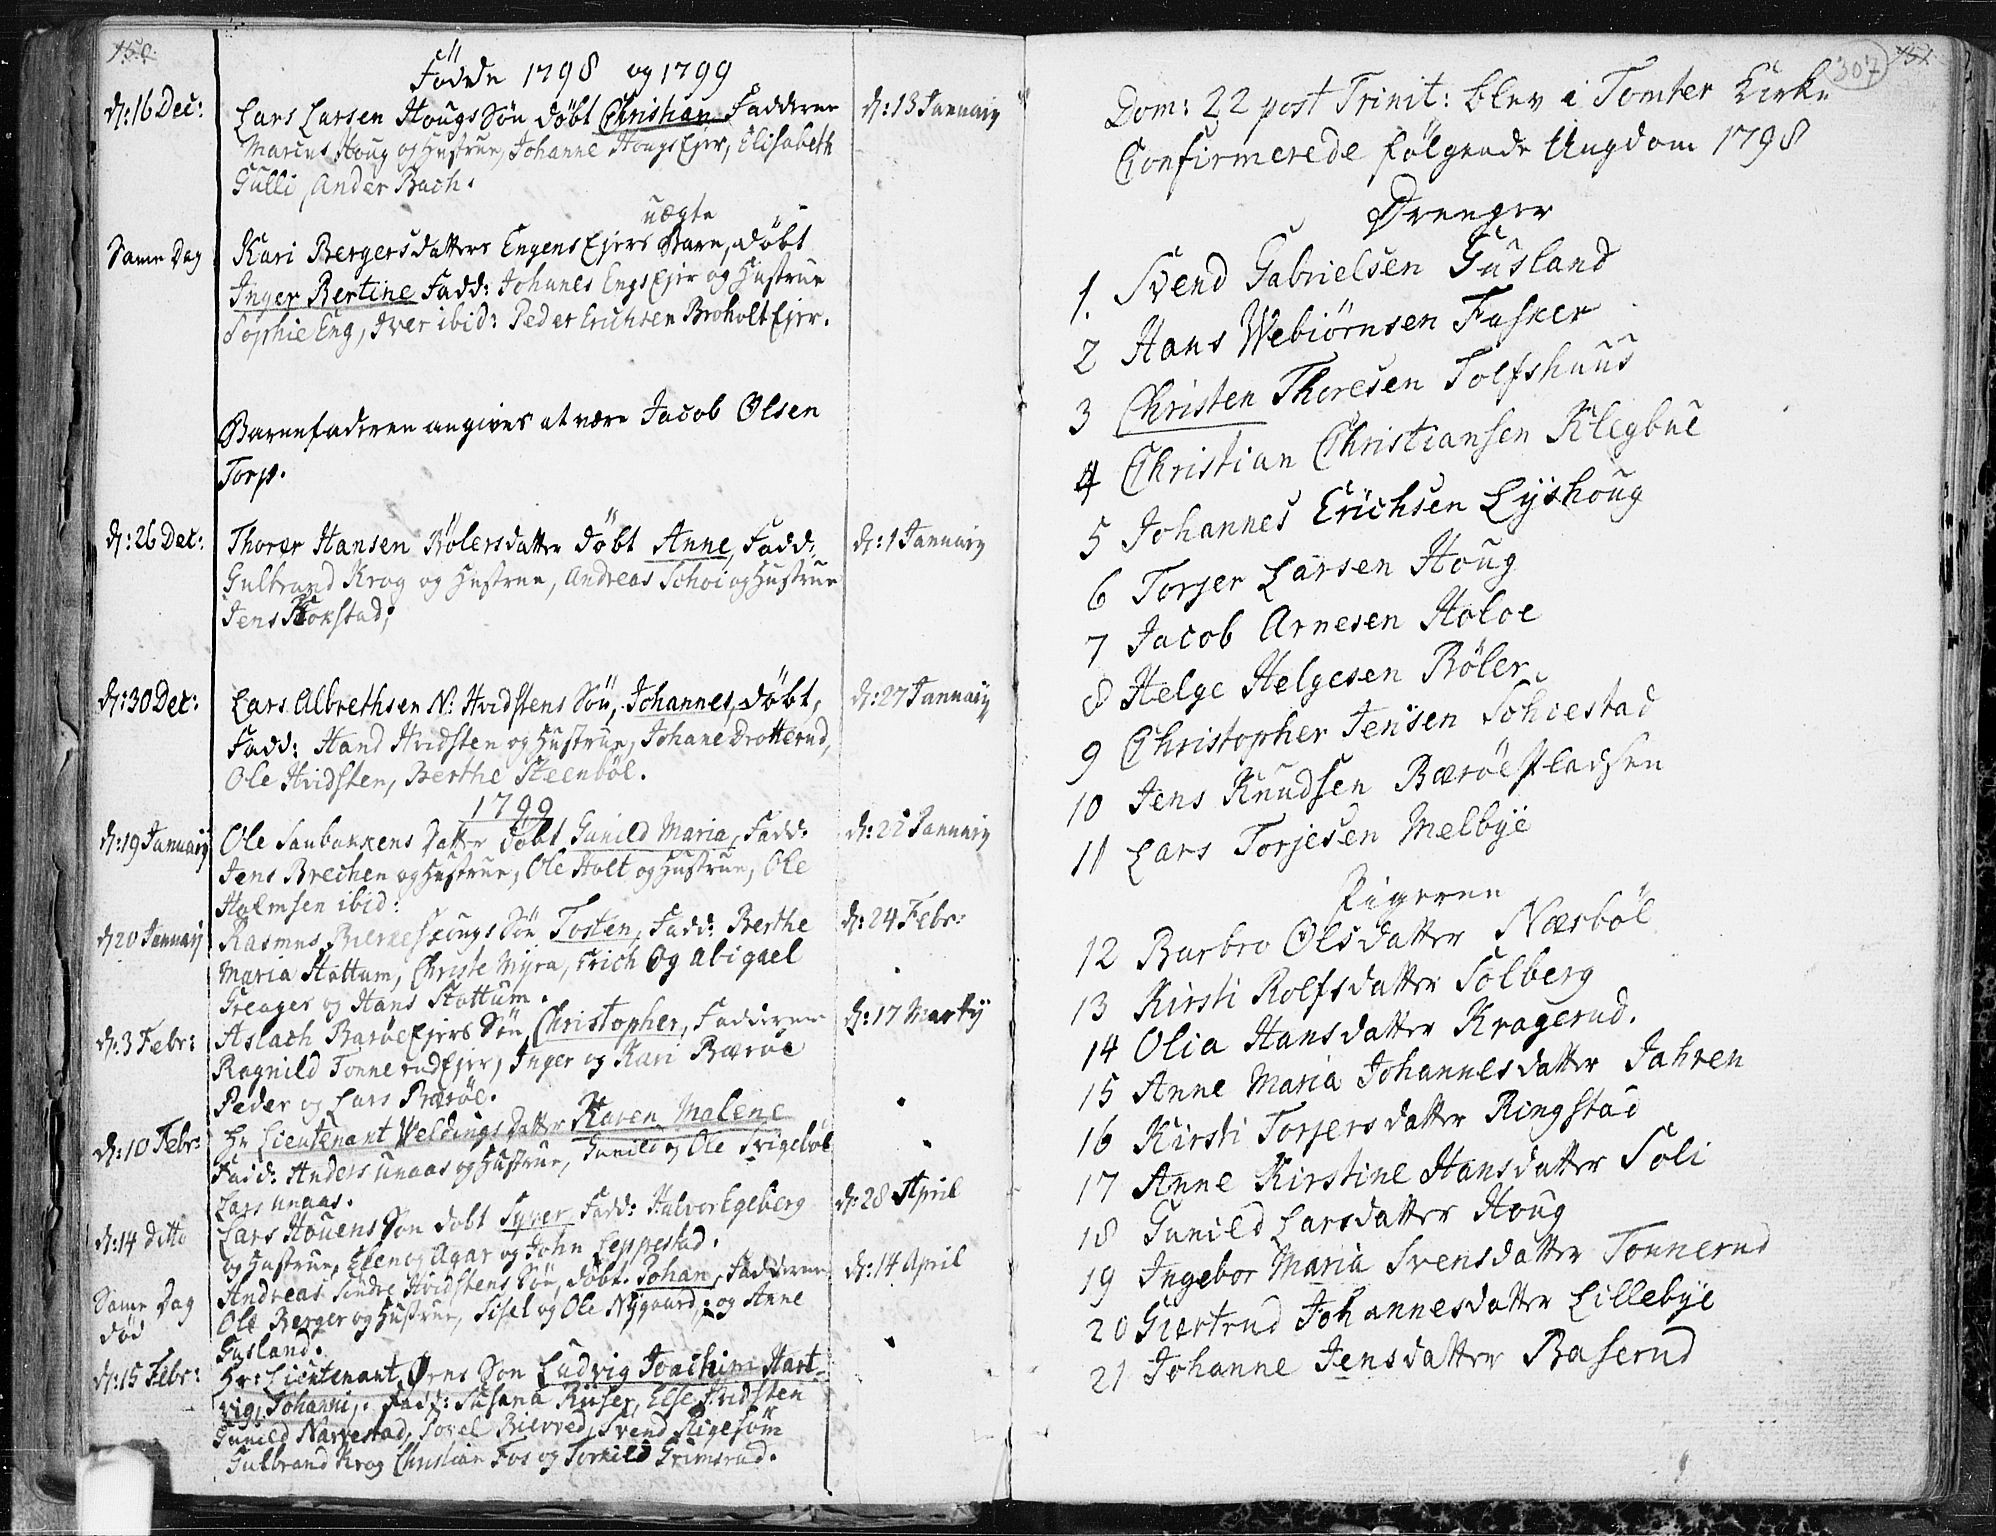 150.
Födde 1798 og 1799
d: 16 Dec: Lars Larsen Hougs Søn døbt Christian Fadderne d: 13 January
Marcus Houg og Hustrue, Johanne Hougs Ejer, Elisabeth
Gulli, Ander Bach.
uægte
Same Dag Kari Bergersdatters Engens Ejers Barn, døbt
Inger Bertine Fadd: Johanes Engs Ejer og Hustrue
Sophie Eng, Iver ibid: Peder Erichsen Broholt Ejer.
Barnefaderen angives at være Jacob Olsen
Torp.
d: 26 Dec: Thorer Hansen Bølers datter døbt Anne, Fadd: d: 1 January
Gulbrand Krog og Hustrue, Andreas Schoi og Hustrue
Jens Stokstad;
d: 30 Dec: Lars Albrethsen N: Hvidstens Søn, Johannes, døbt, d: 27 January
Fadd: Hand Hvidsten og Hustrue, Johane Drotterud,
Ole Hvidsten, Berthe Steenbøl.
1799
d: 19 January Ole Saubakkens Datter døbt Gunild Maria, Fadd: d: 21 January
Jens Brechen og Hustrue, Ole Holt og Hustrue, Ole
Holmsen ibid:
d 20 January Rasmus Søn Tosten, Fadd: Berthe d: 24 Febr:
Maria Stottum, Christe Myra, Erich Og Abigael
Greager og Hans Stottum.
d: 3 Febr: Aslach Barøe Ejers Søn, Christopher, Fadderne d: 17 Marty
Ragnild Tonnerud Ejer, Inger og Kari Bærøe
Peder og Lars Bærøe.
d: 10 Febr: Hr Lieutenant Veldings Datter Karen Malene
Fadd: Anders Unaas og Hustrue, Gunild og Ole Svigebøl
Lars Unaas.
d: 14 ditto Lars Houens Søn døbt Syver Fadd: Halvor Egeberg d: 28 April
og Hustrue, Elen og Agar og John Leppestad.
Same Dag Andreas Søndre Hvidstens Søn, døbt. Johan, Fadderne d: 14 April
død Ole Berger og Hustrue, Sisel og Ole Nygaard, og Anne
Gusland.
d: 15 Febr: Hr: Lieutenant Ørns Søn Ludvig Joachim Hart-
vig, Johanni,. Fadd: Susana Riiser, Else Hvidsten
Gunild Narvestad, Sovel Bierved, Svend Rigesøm
Gulbrand Krog Christian Fos og Torkild Grimsrud.
307 151.
Dom: 22 post Trinit: blev i Tomter Kirke
Confirmerede følgende Ungdom 1798
Drenger
1. Svend Gabrielsen Gusland
2 Hans Webiørnsen Fasker
3 Christen Thoresen Tolfshuus
4 Christian Christiansen Klegbue
5 Johannes Erichsen Lyshoug
6 Torjer Larsen Houg
7 Jacob Arnesen Holoe
8 Helge Helgesen Bøler
9 Christopher Jensen Schiestad
10 Jens Knudsen Bærøepladsen
11 Lars Torjesen Melbye
Pigerne
12 Barbro Olsdatter Næsbøl
13 Kirsti Rolfsdatter Solberg
14 Olia Hansdatter Kragerud.
15 Anne Maria Johannesdatter Jahren
16 Kirsti Torjersdatter Ringstad
17 Anne Kirstine Hansdatter Soli
18 Gunild Larsdatter Houg
19 Ingebor Maria Svensdatter Tonnerud
20 Giertrud Johannesdatter Lillebye
21 Johanne Jensdatter Baserud